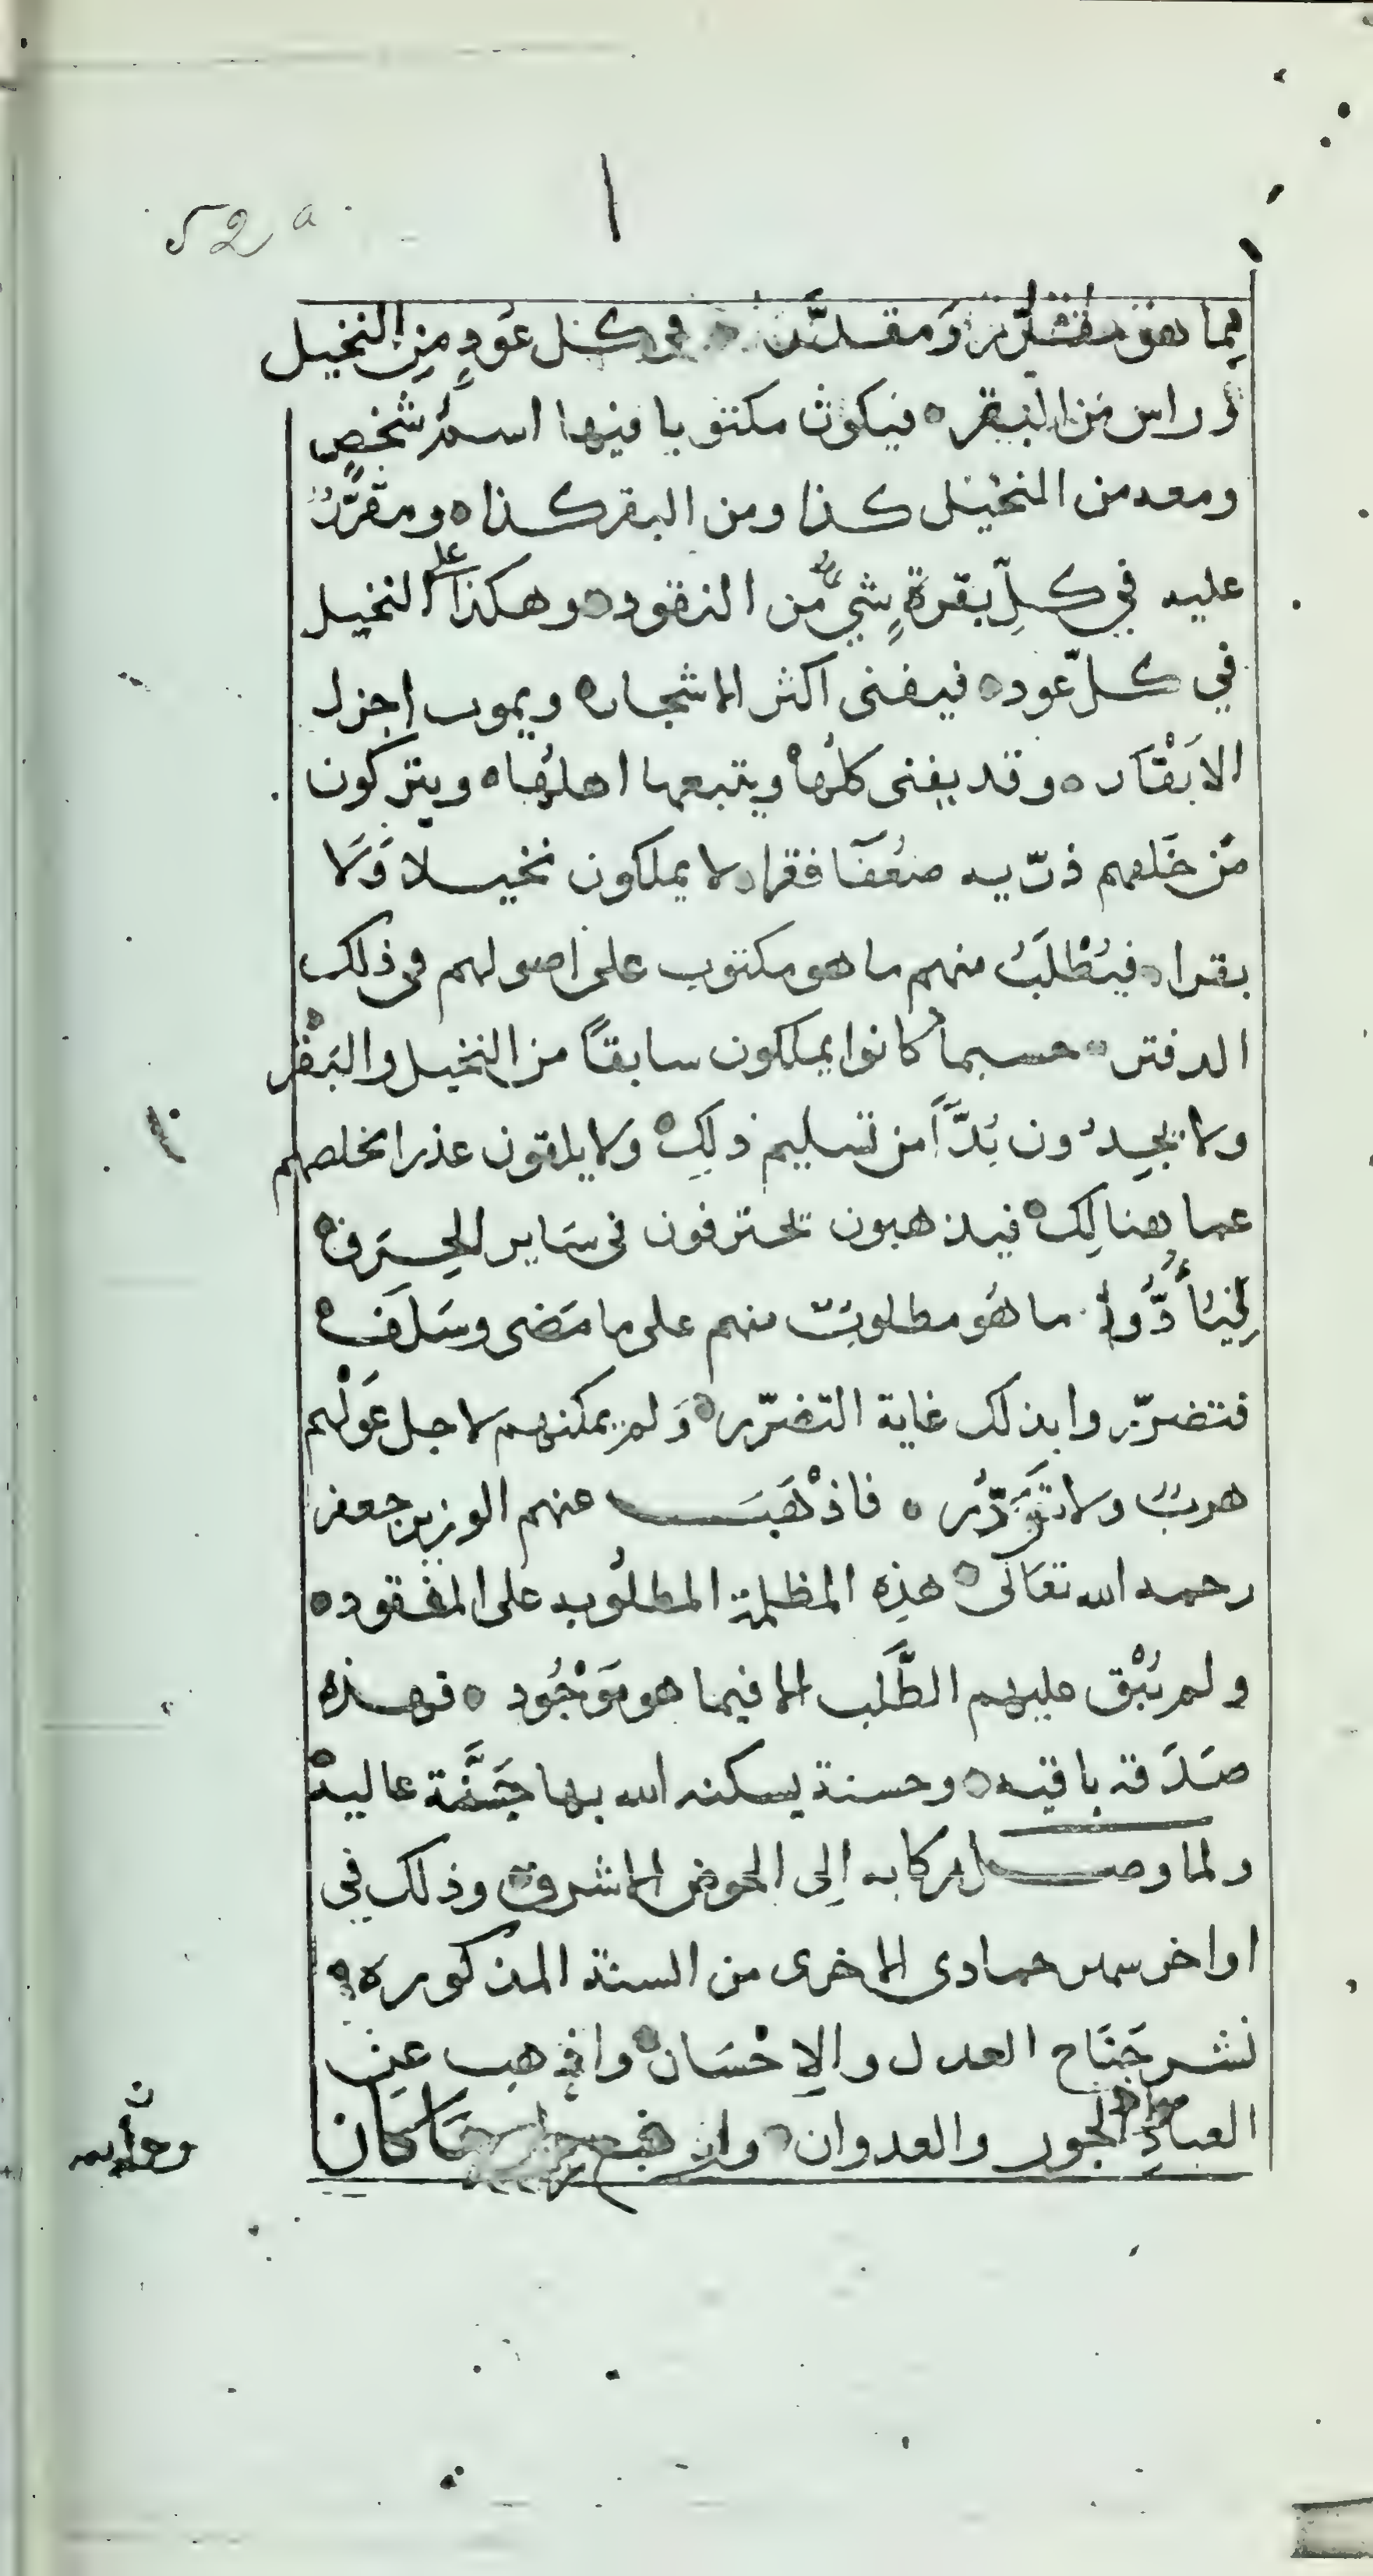 52a
١
فيما هو مقرّر ومقدّر في كل عودٍ مِن النخيل
أو راس مَن البقر ه فيكون مكتوبا فيها اسمُ شخصٍ
ومعه من النخيل كذا ومن البقر كذا ه ومقرَّرٌ
عليه في كلِّ بقرةٍ شيءٌ من النقود ه وهكذا على النخيل
في كلّ عود ه فيفنى اكثر الاشجار ه ويموت اجزل
الابْقَار ه وقد يفنى كلُها ه ويتبعها اهلُها ه ويتركون
مَن خَلفهم ذرّيه ضعُفَا فقرا ه لا يملكون نخيلاً وَلا
بقرا ه فيُطْلَبُ منهم ما هو مكتوب على اصولهم في ذلك
الدفتر ه حسبما كانوا يملكون سابقاً من النخيل والبَقْر ه
ولا يجِدُون بُدَّاً من تسليم ذلِك ه ولا يلقون عذرا يخلصهم
عما هنالِك ه فيذهبون يحترفون في سَاير الحِرَف ه
لِيُأَدُّوا ما هُو مطلوبٌ منهم على ما مَضى وسَلَف ه
فتضرّروا بذلك غاية التضرّر ه وَلم يمكنهم لاجل عَوْلهم
هربٌ ولا تَوَرُّر ه فاذْهَبَ عنهم الوزير جعفر
رحمه الله تعَالى ه هذِه المظلمة المطلُوبه على المفقود ه
ولم يُبْق عليهم الطَّلَب الا فيما هو مَوْجُود ه فهذه
صَدَقه باقيه ه وحسنة يسكنه الله بها جَنَّة عاليهْ
ولما وصل ركابه إلى الحوض الاشرف وذلك في
اواخر شهر جمادى الاخرى من السنة المذكوره ه
نشر جَنَاح العدل والإحْسَان ه واذهب عن
العبادِ الجور والعدوان ه وان مَا كان